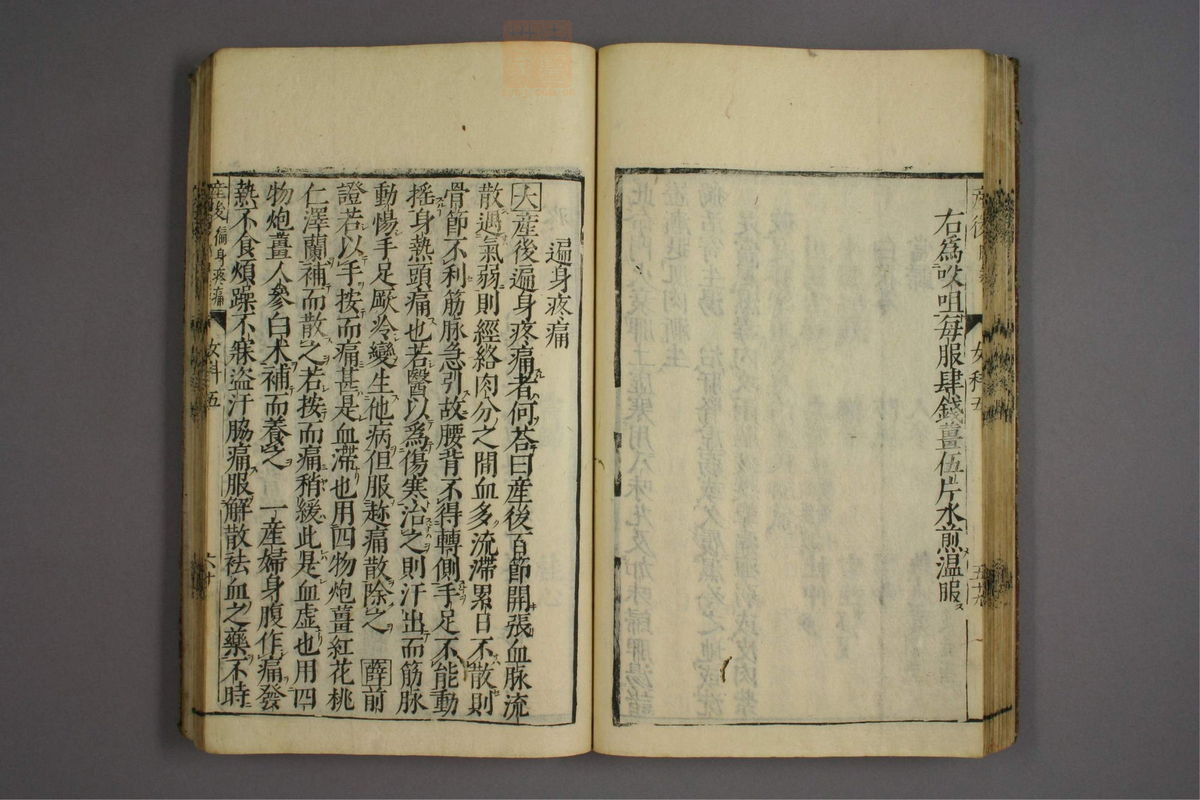 右為㕮咀每服肆錢薑伍片水煎温服
女科五
遍身疼痛
大産後遍身疼痛者何荅曰産後百節開張血脉流
散遇氣弱則經絡肉分之間血多流滯累日不散則
骨節不利筋脉急引故腰背不得轉側手足不能動
摇身熱頭痛也若醫以為傷寒治之則汗出而筋脉
動惕手足厥冷變生他病但服趂痛散除之薛前
證若以手按而痛甚是血滯也用四物炮薑紅花桃
仁澤蘭補而散之若按而痛稍緩此是血虚也用四
物炮薑人參白术補而養之一産婦身腹作痛發
熱不食煩躁不寐盜汗脇痛服解散祛血之藥不時
産後徧身疼痛 女科五 六十